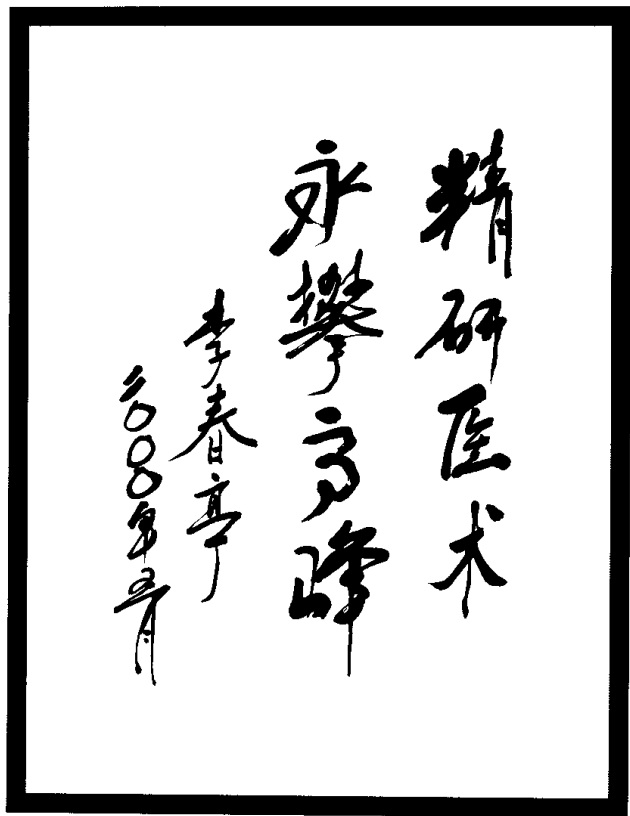 精研医术
永攀高峰
李春亭
二〇〇〇年五月